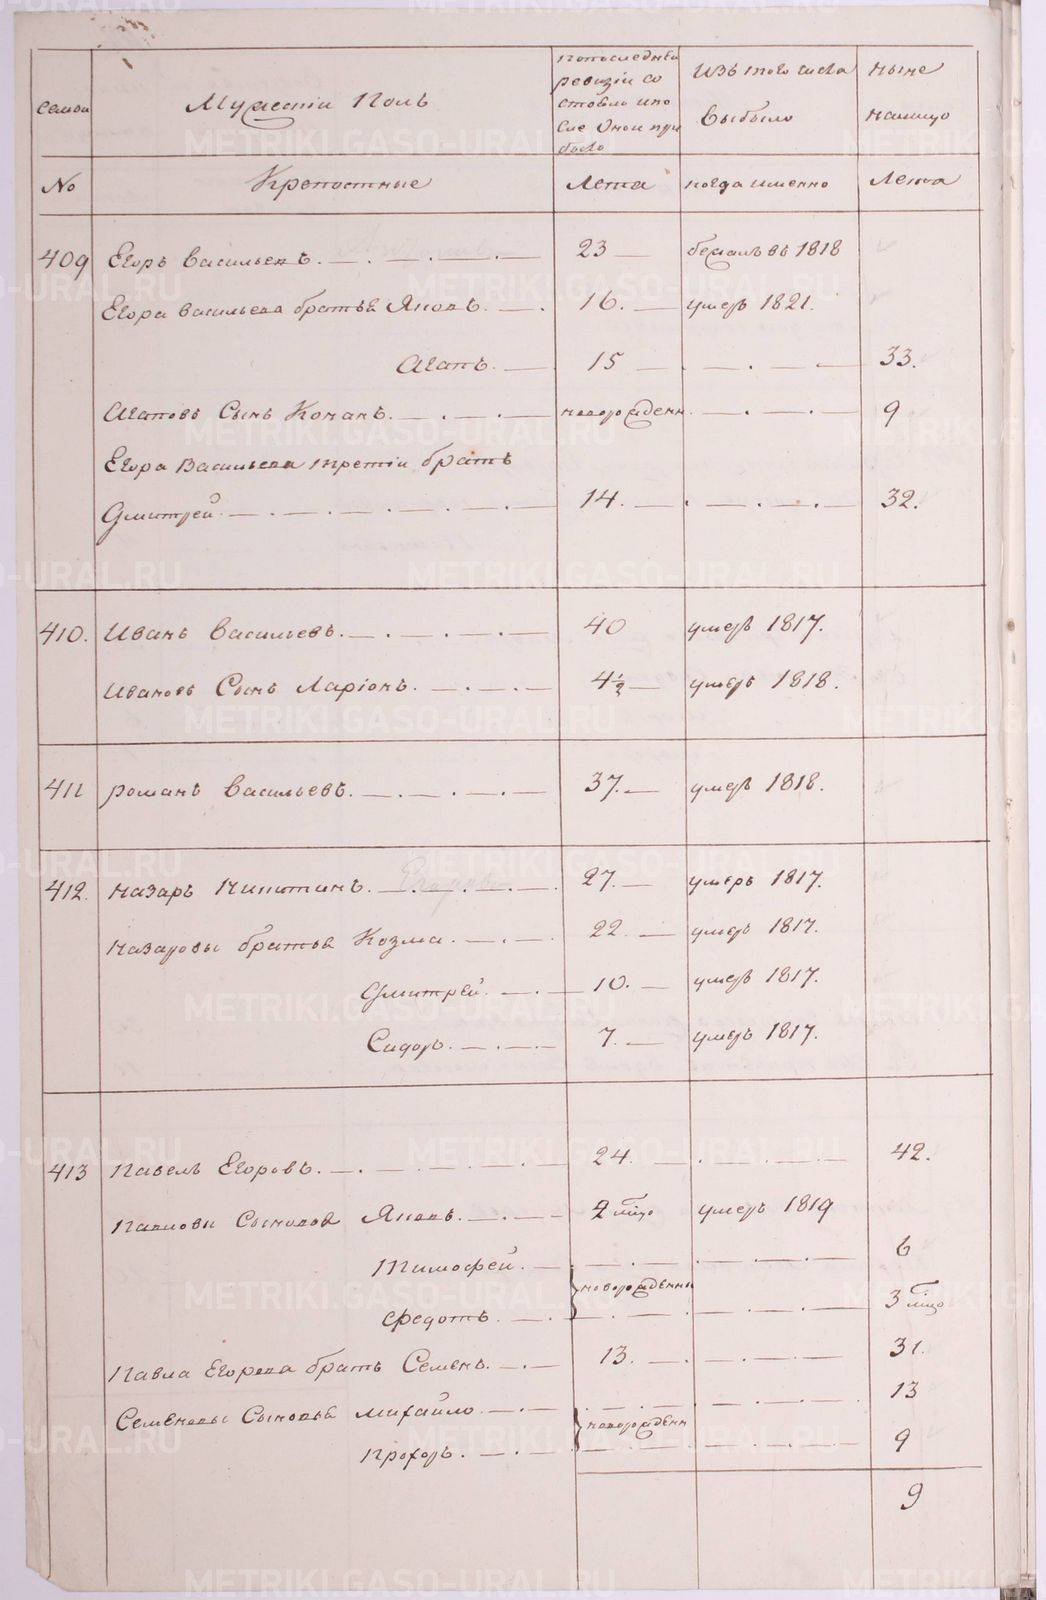 семьи
Мужескiй Полъ
По последней
ревизiи со
стояло и по
сле оной при
было
Изъ того числа
выбыло
Ныне
налицо
No
Крепостные
Лета
когда именно
Лета
409 Егоръ Васильевъ. 23 бежалъ въ 1818
Егора Васильева братья Яковъ. 16. умеръ 1821.
Агапъ. 15 33.
Агаповъ Сынъ Кононъ. новорожденн. 9
Егора Васильева третiй братъ
Дмитрей 14. 32.
410. Иванъ Васильевъ. 40 умеръ 1817.
Ивановъ Сынъ Ларiонъ. 4½ умеръ 1818.
411 Романъ Васильевъ. 37. умеръ 1818.
412. Назаръ Никитинъ. 27. умеръ 1817.
Назаровы братья Козма. 22. умеръ 1817.
Дмитрей. 10. умеръ 1817.
Сидоръ. 7. умеръ 1817.
413 Павелъ Егоровъ. 24. 42.
Павловы Сыновья Яковъ. 2 мцо умеръ 1819
Тимофей. 6
новорожденны
Федотъ. 3 мцо
Павла Егорова братъ Семенъ. 13. 31.
Семеновы Сыновья Михайло 13
новорожденн
Прохоръ. 9
9
METRIKI.GASO-URAL.RU